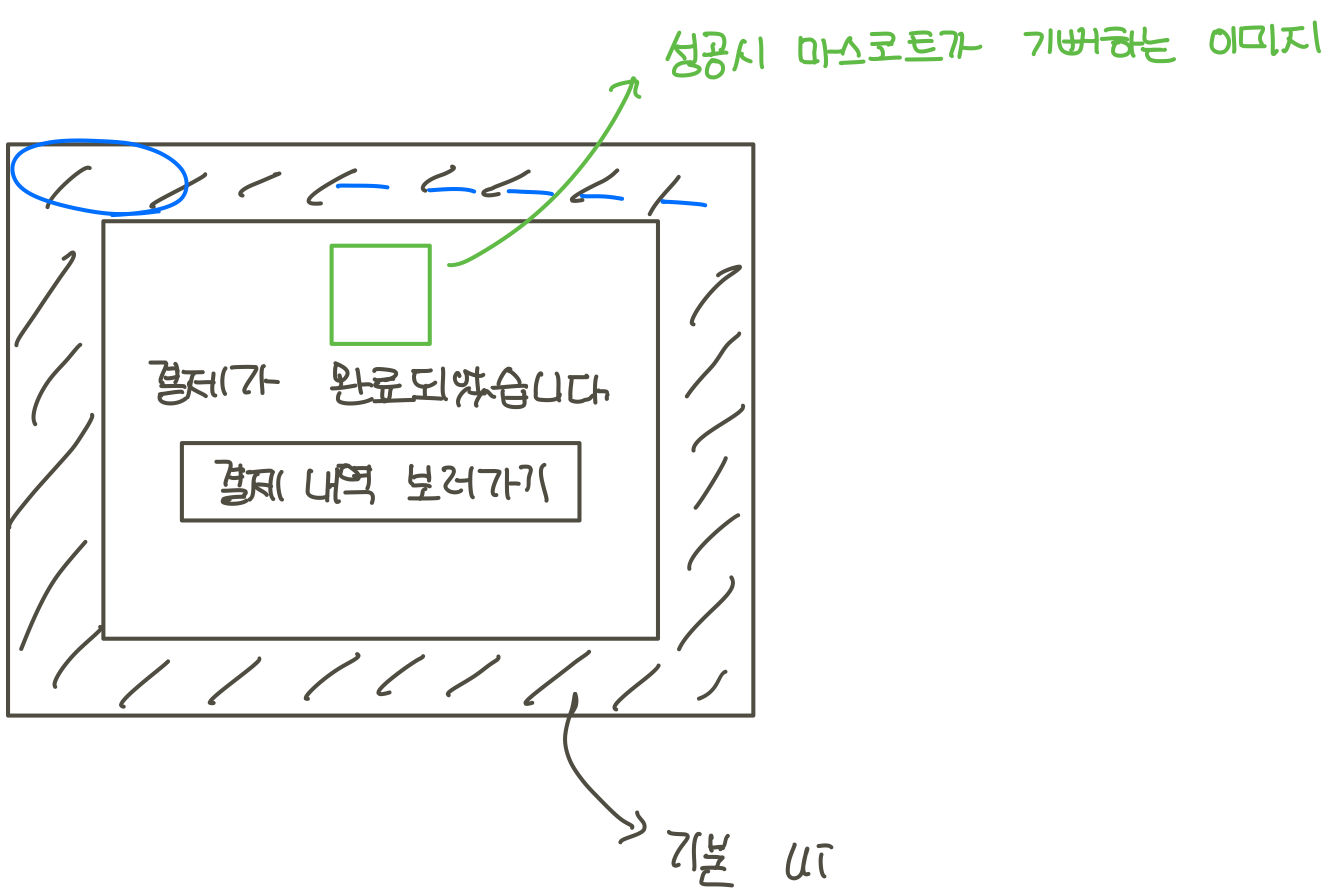 성공시 마스코트가 기뻐하는 이미지
결제가 완료되었습니다
결제 내역 보러가기
기본 UI